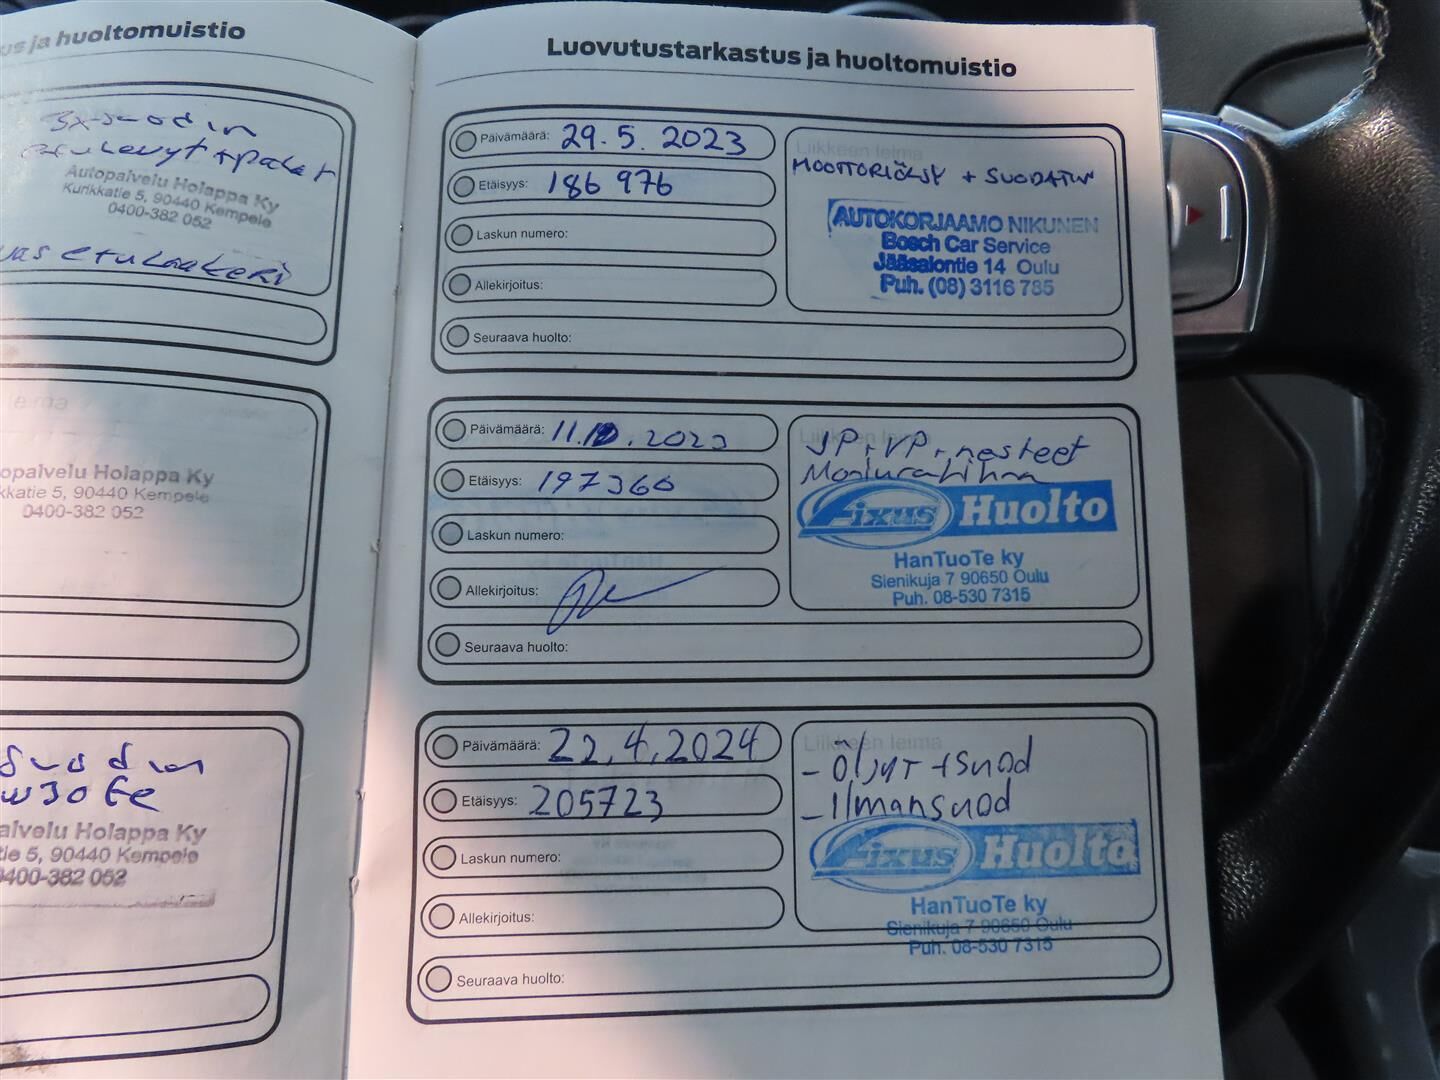 us ja huoltomuistio
3x-suodin
etulevyt+palat
Autopalvelu Holappa Ky
Kurikkatie 5, 90440 Kempele
0400-382 052
etulaakeri
leima
opalvelu Holappa Ky
kkatie 5, 90440 Kempele
0400-382 052
suodin
alvelu Holappa Ky
tie 5, 90440 Kempele
0400-382 052
Luovutustarkastus ja huoltomuistio
Päivämäärä: 29.5.2023
Etäisyys: 186 976
Laskun numero:
Allekirjoitus:
Seuraava huolto:
Liikkeen leima
MOOTTORIÖLJY + SUODATIN
AUTOKORJAAMO NIKUNEN
Bosch Car Service
Jääsalontie 14 Oulu
Puh. (08) 3116 785
Päivämäärä: 11.10.2023
Etäisyys: 197360
Laskun numero:
Allekirjoitus:
Seuraava huolto:
Liikkeen leima
JP+VP+nesteet
Moniurahihna
Fixus Huolto
HanTuoTe ky
Sienikuja 7 90650 Oulu
Puh. 08-530 7315
Päivämäärä: 22.4.2024
Etäisyys: 205723
Laskun numero:
Allekirjoitus:
Seuraava huolto:
Liikkeen leima
- Öljyt + suod
- Ilmansuod
Fixus Huolto
HanTuoTe ky
Sienikuja 7 90650 Oulu
Puh. 08-530 7315